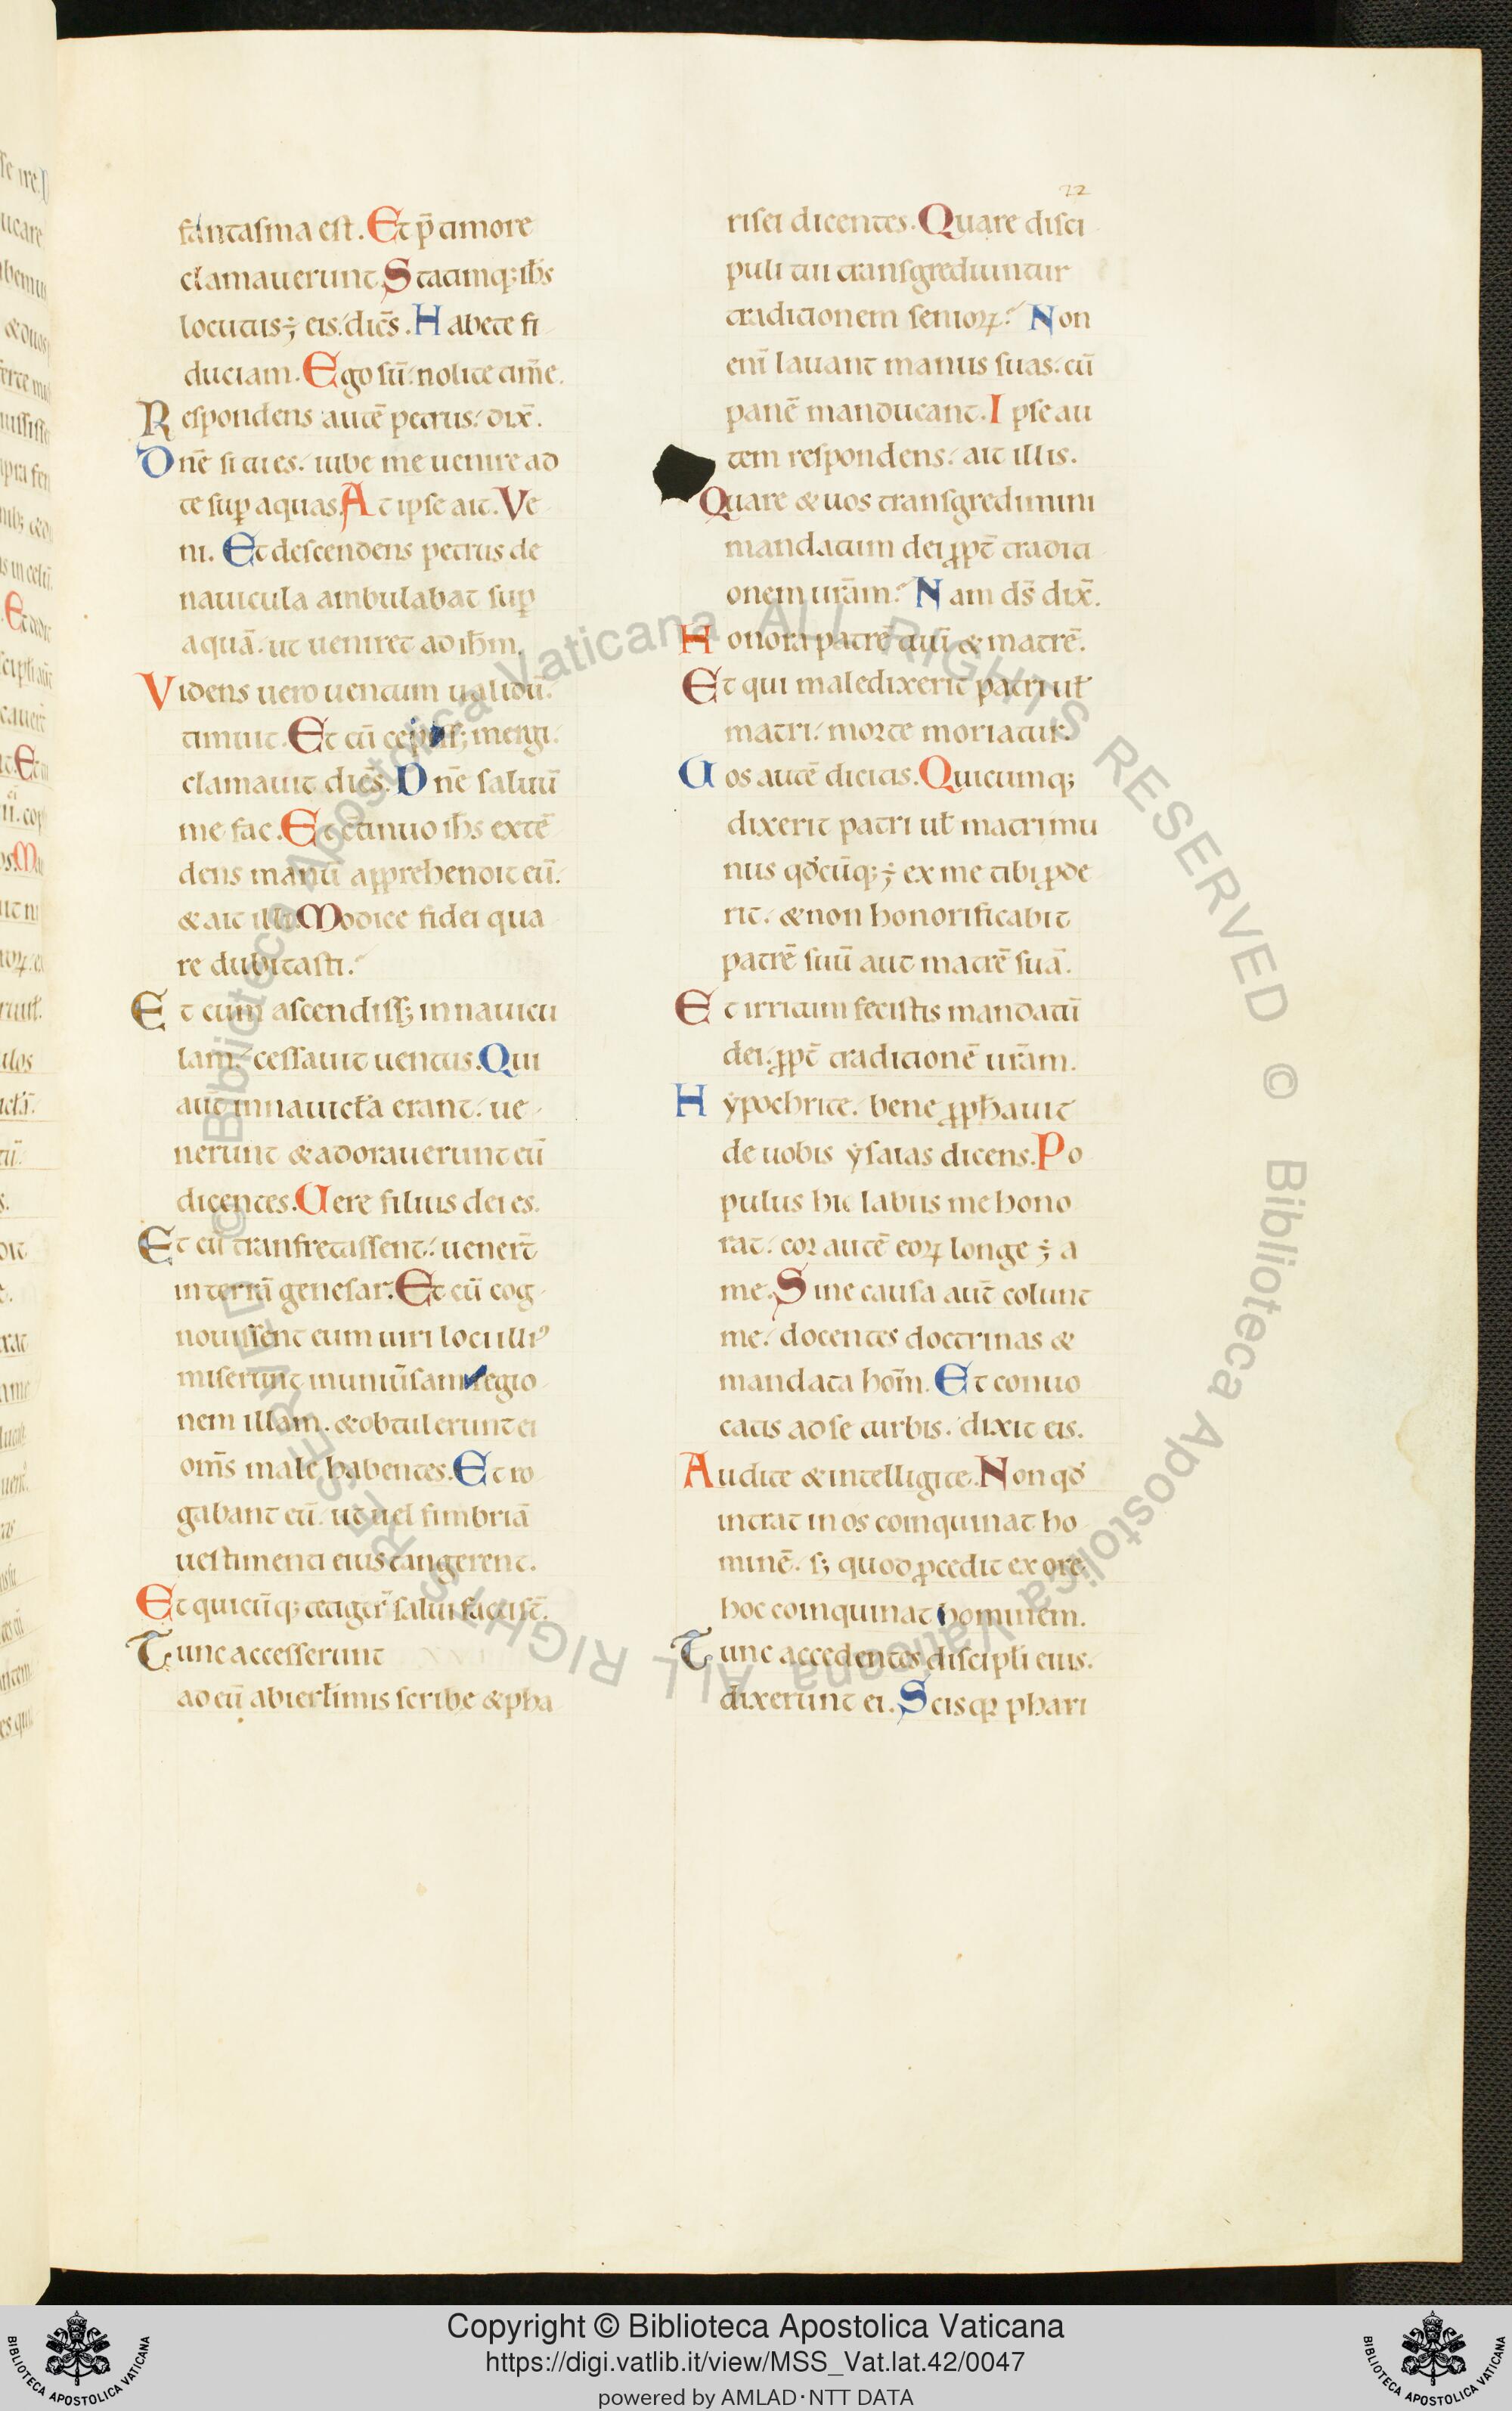 22
fantasma est. Et p̄ timore
clamauerunt. Statimq; ih̄s
locutus ÷ eis. dicēs. Habete fi
duciam. Ego sū. nolite timē.
Respondens autē petrus. dix̄.
Dn̄e si tu es. iube me uenire ad
te suꝑ aquas. At ipse ait. Ve
ni. Et descendens petrus de
nauicula ambulabat suꝑ
aquā. ut ueniret ad ih̄m.
Videns uero uentum ualidū.
timuit. Et cū cepiss; mergi.
clamauit dicēs. Dn̄e saluū
me fac. Et ctinuo ih̄s extē
dens manū apprehendit eū.
& ait illi. Modice fidei qua
re dubitasti.
Et cum ascendiss; in nauicu
lam. cessauit uentus. Qui
aut̄ in nauicl̄a erant. ue
nerunt & adorauerunt eū
dicentes. Uere filius dei es.
Et cū transfretassent. uenert̄
in terrā genesar. Et cū cog
nouissent eum uiri loci illiꝰ
miserunt in uniūsam regio
nem illam. & obtulerunt ei
om̄s male habentes. Et ro
gabant eū. ut uel fimbriā
uestimenti eius tangerent.
Et quicūq; tetiger̄ salui facti st̄.
Tunc accesserunt
ad eū ab ierl̄imis scribe & pha
risei dicentes. Quare disci
puli tui transgrediuntur
traditionem senioꝝ? Non
enī lauant manus suas. cū
panē manducant. Ipse au
tem respondens. ait illis.
Quare & uos transgredimini
mandatum dei ꝓpt̄ traditi
onem ur̄am? Nam ds̄ dix̄.
Honora patrē tuū & matrē.
Et qui maledixerit patri ul̄
matri. morte moriatur.
Uos autē dicitis. Quicumq;
dixerit patri ul̄ matri mu
nus qd̄cūq; ÷ ex me tibi ꝓde
rit. & non honorificabit
patrē suū aut matrē suā.
Et irritum fecistis mandatū
dei. ꝓpt̄ traditionē ur̄am.
Hẏpochrite. bene ꝓph̄auit
de uobis ẏsaias dicens. Po
pulus hic labiis me hono
rat. cor autē eoꝝ longe ÷ a
me. Sine causa aut̄ colunt
me. docentes doctrinas &
mandata hom̄. Et conuo
catis ad se turbis. dixit eis.
Audite & intelligite. Non qd̄
intrat in os coinquinat ho
minē. s; quod ꝓcedit ex ore.
hoc coinquinat hominem.
Tunc accedentes discipl̄i eius.
dixerunt ei. Scis qꝛ phari
© Biblioteca Apostolica Vaticana ALL RIGHTS RESERVED © Biblioteca Apostolica Vaticana ALL RIGHTS RESERVED
Copyright © Biblioteca Apostolica Vaticana
https://digi.vatlib.it/view/MSS_Vat.lat.42/0047
powered by AMLAD·NTT DATA
BIBLIOTECA APOSTOLICA VATICANA
BIBLIOTECA APOSTOLICA VATICANA